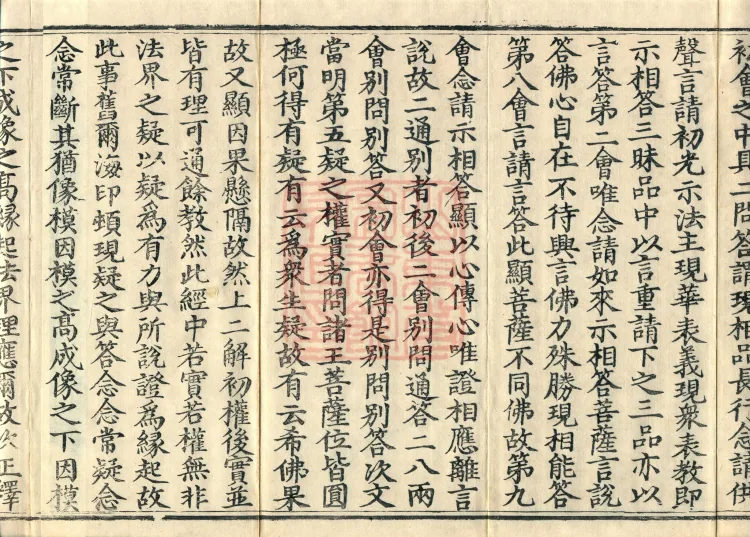 初會之中具二問答請現相品長行念請供
聲言請初光示法主現華表義現衆表教即
示相答三昧品中以言重請下之三品亦以
言答第二會唯念請如來示相答菩薩言說
答佛心自在不待興言佛力殊勝現相能答
第八會言請言答此顯菩薩不同佛故第九
會念請示相答顯以心傳心唯證相應離言
說故二通別者初後二會別問通答二八兩
會別問別答又初會亦得是別問別答次文
當明第五疑之權實者問諸王菩薩位皆圓
極何得有疑有云爲衆生疑故有云希佛果
故又顯因果懸隔故然上二解初權後實並
皆有理可通餘教然此經中若實若權無非
法界之疑以疑爲有力與所說證爲緣起故
此事舊爾海印頓現疑之與答念念常疑念
念常斷其猶像模因模之高成像之下因模
之下成像之高緣起法界理應爾故次正釋